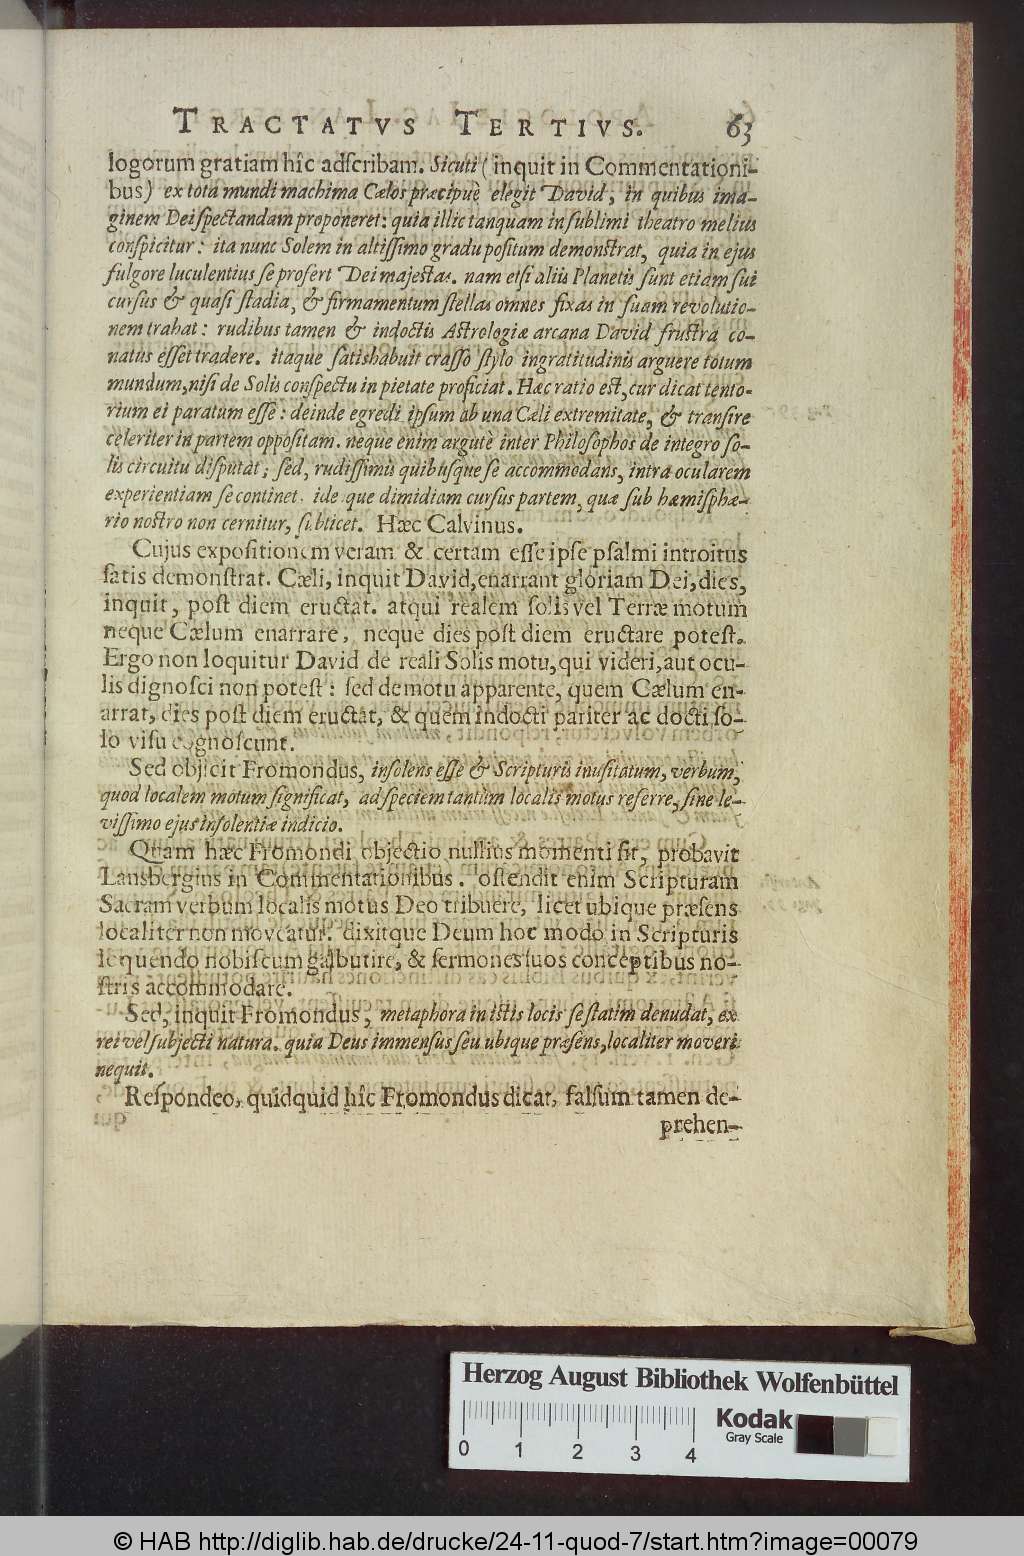 TRACTATVS TERTIVS. 63
logorum gratiam hîc adſcribam. Sicuti (inquit in Commentationi-
bus) ex tota mundi machina Cælos præcipuè elegit David, in quibus ima-
ginem Dei ſpectandam proponeret: quia illic tanquam in ſublimi theatro melius
conſpicitur: ita nunc Solem in altiſſimo gradu poſitum demonſtrat, quia in ejus
fulgore luculentius ſe profert Dei majeſtas. nam etſi aliis Planetis ſunt etiam ſui
curſus & quaſi ſtadia, & firmamentum ſtellas omnes fixas in ſuam revolutio-
nem trahat: rudibus tamen & indoctis Aſtrologiæ arcana David fruſtra co-
natus eſſet tradere. itaque ſatis habuit craſſo ſtylo ingratitudinis arguere totum
mundum, niſi de Solis conſpectu in pietate proficiat. Hæc ratio eſt, cur dicat tento-
rium ei paratum eſſe: deinde egredi ipſum ab una Cæli extremitate, & tranſire
celeriter in partem oppoſitam. neque enim argutè inter Philoſophos de integro ſo-
lis circuitu diſputat; ſed, rudiſſimis quibuſque ſe accommodans, intra ocularem
experientiam ſe continet. ideoque dimidiam curſus partem, quæ ſub hæmiſphæ-
rio noſtro non cernitur, ſubticet. Hæc Calvinus.
Cujus expoſitionem veram & certam eſſe ipſe pſalmi introitus
ſatis demonſtrat. Cæli, inquit David, enarrant gloriam Dei, dies,
inquit, poſt diem eructat. atqui realem ſolis vel Terræ motum
neque Cælum enarrare, neque dies poſt diem eructare poteſt.
Ergo non loquitur David de reali Solis motu, qui videri, aut ocu-
lis dignoſci non poteſt: ſed de motu apparente, quem Cælum en-
arrat, dies poſt diem eructat, & quem indocti pariter ac docti ſo-
lo viſu cognoſcunt.
Sed objicit Fromondus, inſolens eſſe & Scripturis inuſitatum, verbum,
quod localem motum ſignificat, ad ſpeciem tantùm localis motus referre, ſine le-
viſſimo ejus inſolentiæ indicio.
Quam hæc Fromondi objectio nullius momenti ſit, probavit
Lansbergius in Commentationibus. oſtendit enim Scripturam
Sacram verbum localis motus Deo tribuere, licet ubique præſens
localiter non moveatur. dixitque Deum hoc modo in Scripturis
loquendo nobiſcum balbutire, & ſermones ſuos conceptibus no-
ſtris accommodare.
Sed, inquit Fromondus, metaphora in iſtis locis ſe ſtatim denudat, ex
rei vel ſubjecti natura. quia Deus immenſus ſeu ubique præſens, localiter moveri
nequit.
Reſpondeo, quidquid hîc Fromondus dicat, falſum tamen de-
prehen-
Herzog August Bibliothek Wolfenbüttel
0 1 2 3 4
Kodak
Gray Scale
© HAB http://diglib.hab.de/drucke/24-11-quod-7/start.htm?image=00079